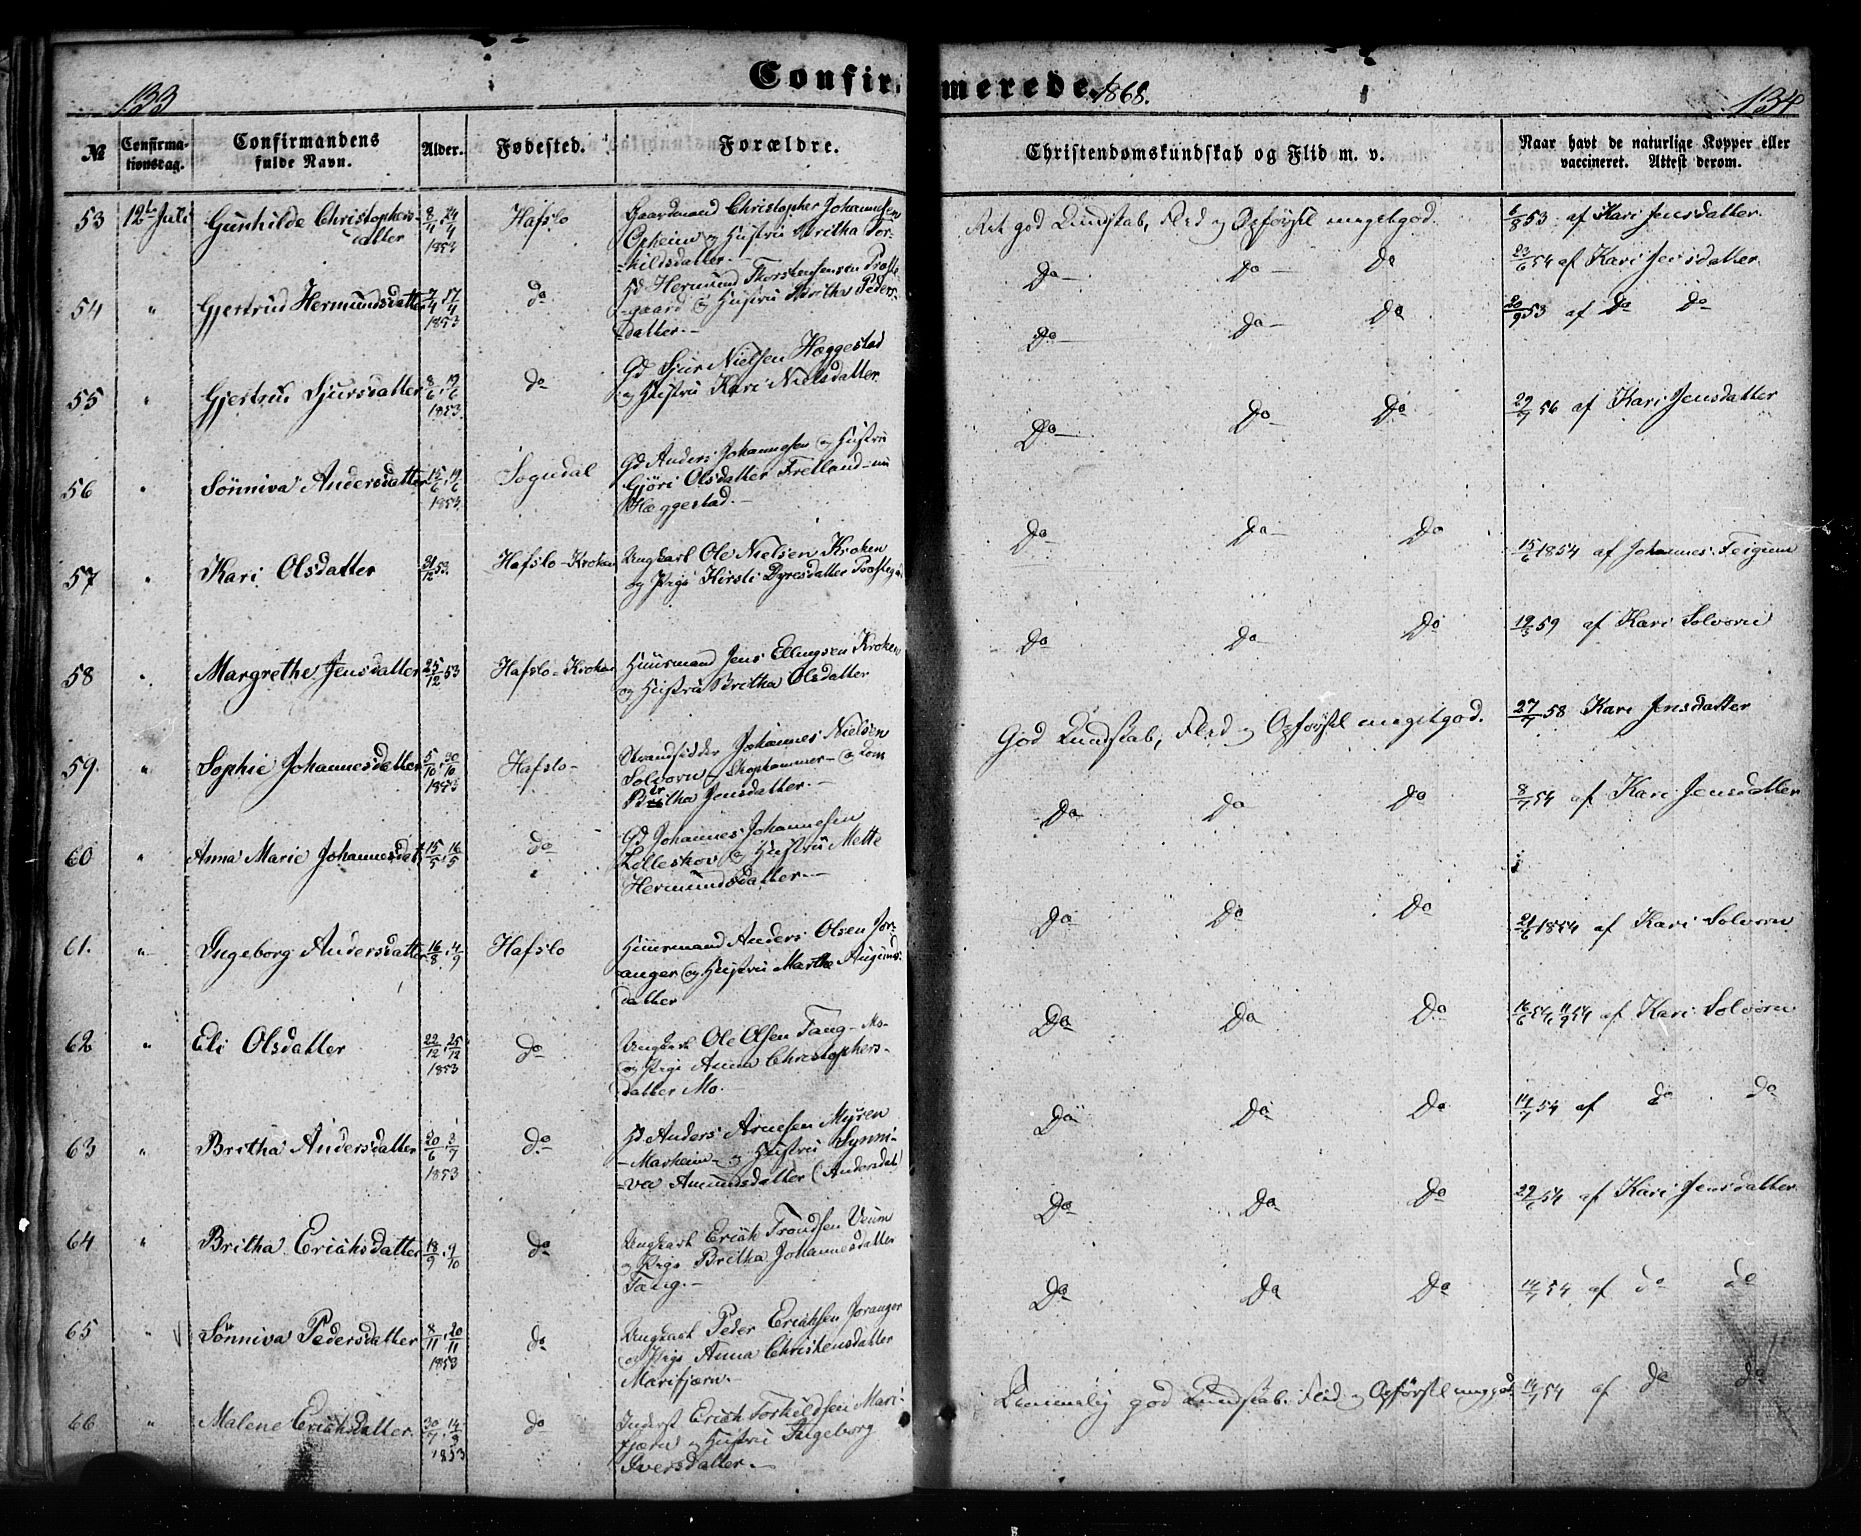 133
Confir-
merede. 1868.
134
№ Confirma-tionsdag. Confirmandens fulde Navn. Alder. Fødested. Forældre.
Christendomskundskab og Flid m. v. Naar havt de naturlige Kopper eller vaccineret. Attest derom.
53 12te Juli Gunhilde Christophers-datter 8/4, 24/4 1853 Hafslo Gaardmand Christopher Johannesen
Opheim og Hustru Britha Tor-
=kildsdatter.-
Ret god Kundskab, Flid og Opførsel megetgod. 6/8 53 af Kari Jensdatter.
54 " Gjertrud Hermundsdatter 7/4, 17/4 1853 do Gd Hermund Thorstensen Proste-
=gaard og Hustru Britha Peders-
datter.-
Do Do Do 23/6 54 af Kari Jensdatter
55 " Gjertrud Sjursdatter 8/6, 19/6 1853. do Gd Sjur Nielsen Heggestad
og Hustru Kari Nielsdatter
Do Do Do 20/9 53 af Do Do
56 " Sønniva Andersdatter 15/6, 19/6 1853 Sogndal Gd Anders Johannesen og Hustru
Gjöri Olsdatter Fretland - nu
Heggestad.-
Do Do Do 29/7 56 af Kari Jensdatter
57 " Kari Olsdatter 31/12 53. Hafslo - Kroken Ungkarl Ole Nielsen Kroken
og Pige Kirsti Dyresdatter
Do Do Do 15/6 1854 af Johannes Feigum
58 " Margrethe Jensdatter 25/12 53 Hafslo - Kroken Huusmand Jens Ellingsen Kroken
og Hustru Britha Olsdatter
Do Do Do 19/5 59 af Kari Solvorn
59. " Sophie Johannesdatter 5/10, 30/10 1853 Hafslo - Strandsidder Johannes Nielsen
Solvorn - og Kone
Britha Jensdatter.-
God Kundskab, Flid og Opførsel megetgod. 27/7 58 Kari Jensdatter
60 " Anna Marie Johannesdat. 15/5, 16/5 do Gd Johannes Johannesen
Lilleskov og Hustru Mette
Hermundsdatter.-
Do Do Do 8/7 54 af Kari Jensdatter
61. " Ingeborg Andersdatter 16/8, 4/9 Hafslo Huusmand Anders Olsen Jor-
anger og Hustru Martha
datter
Do Do Do 21/6 1854 af Kari Solvorn
62 " Eli Olsdatter 22/12, 25/12 1853 do Ungkarl Ole Olsen Fang - Mo-
og Pige Anna Christophers-
datter Mo.
Do Do Do 16/6 54, 11/9 54 af Kari Solvorn
63 " Britha Andersdatter 20/6, 3/7 1853 do Gd Anders Arnesen Myren
- Marheim - og Hustru Synni-
=va Amundsdatter (Andersdat)
Do Do Do 14/7 54 af do do
64 " Britha Erichsdatter 18/9, 9/10 do Ungkarl Erich Trondsen Veum
og Pige Britha Johannesdatter
Fang.-
Do Do Do 29/6 54 af Kari Jensdatter
65 " Sønniva Pedersdatter 8/11, 20/11 1853 do Ungkarl Peder Erichsen Joranger
og Pige Anna Christensdatter
Marifjæren.
Do Do Do 14/7 54 af do do
66 " Malene Erichsdatter. 30/7, 14/8 1853 do Inderst Erich Torkildsen Mari-
fjæren og Hustru Ingeborg
Iversdatter.-
Temmelig god Kundskab. Flid og Opførsel meg god. 14/7 54 af do do